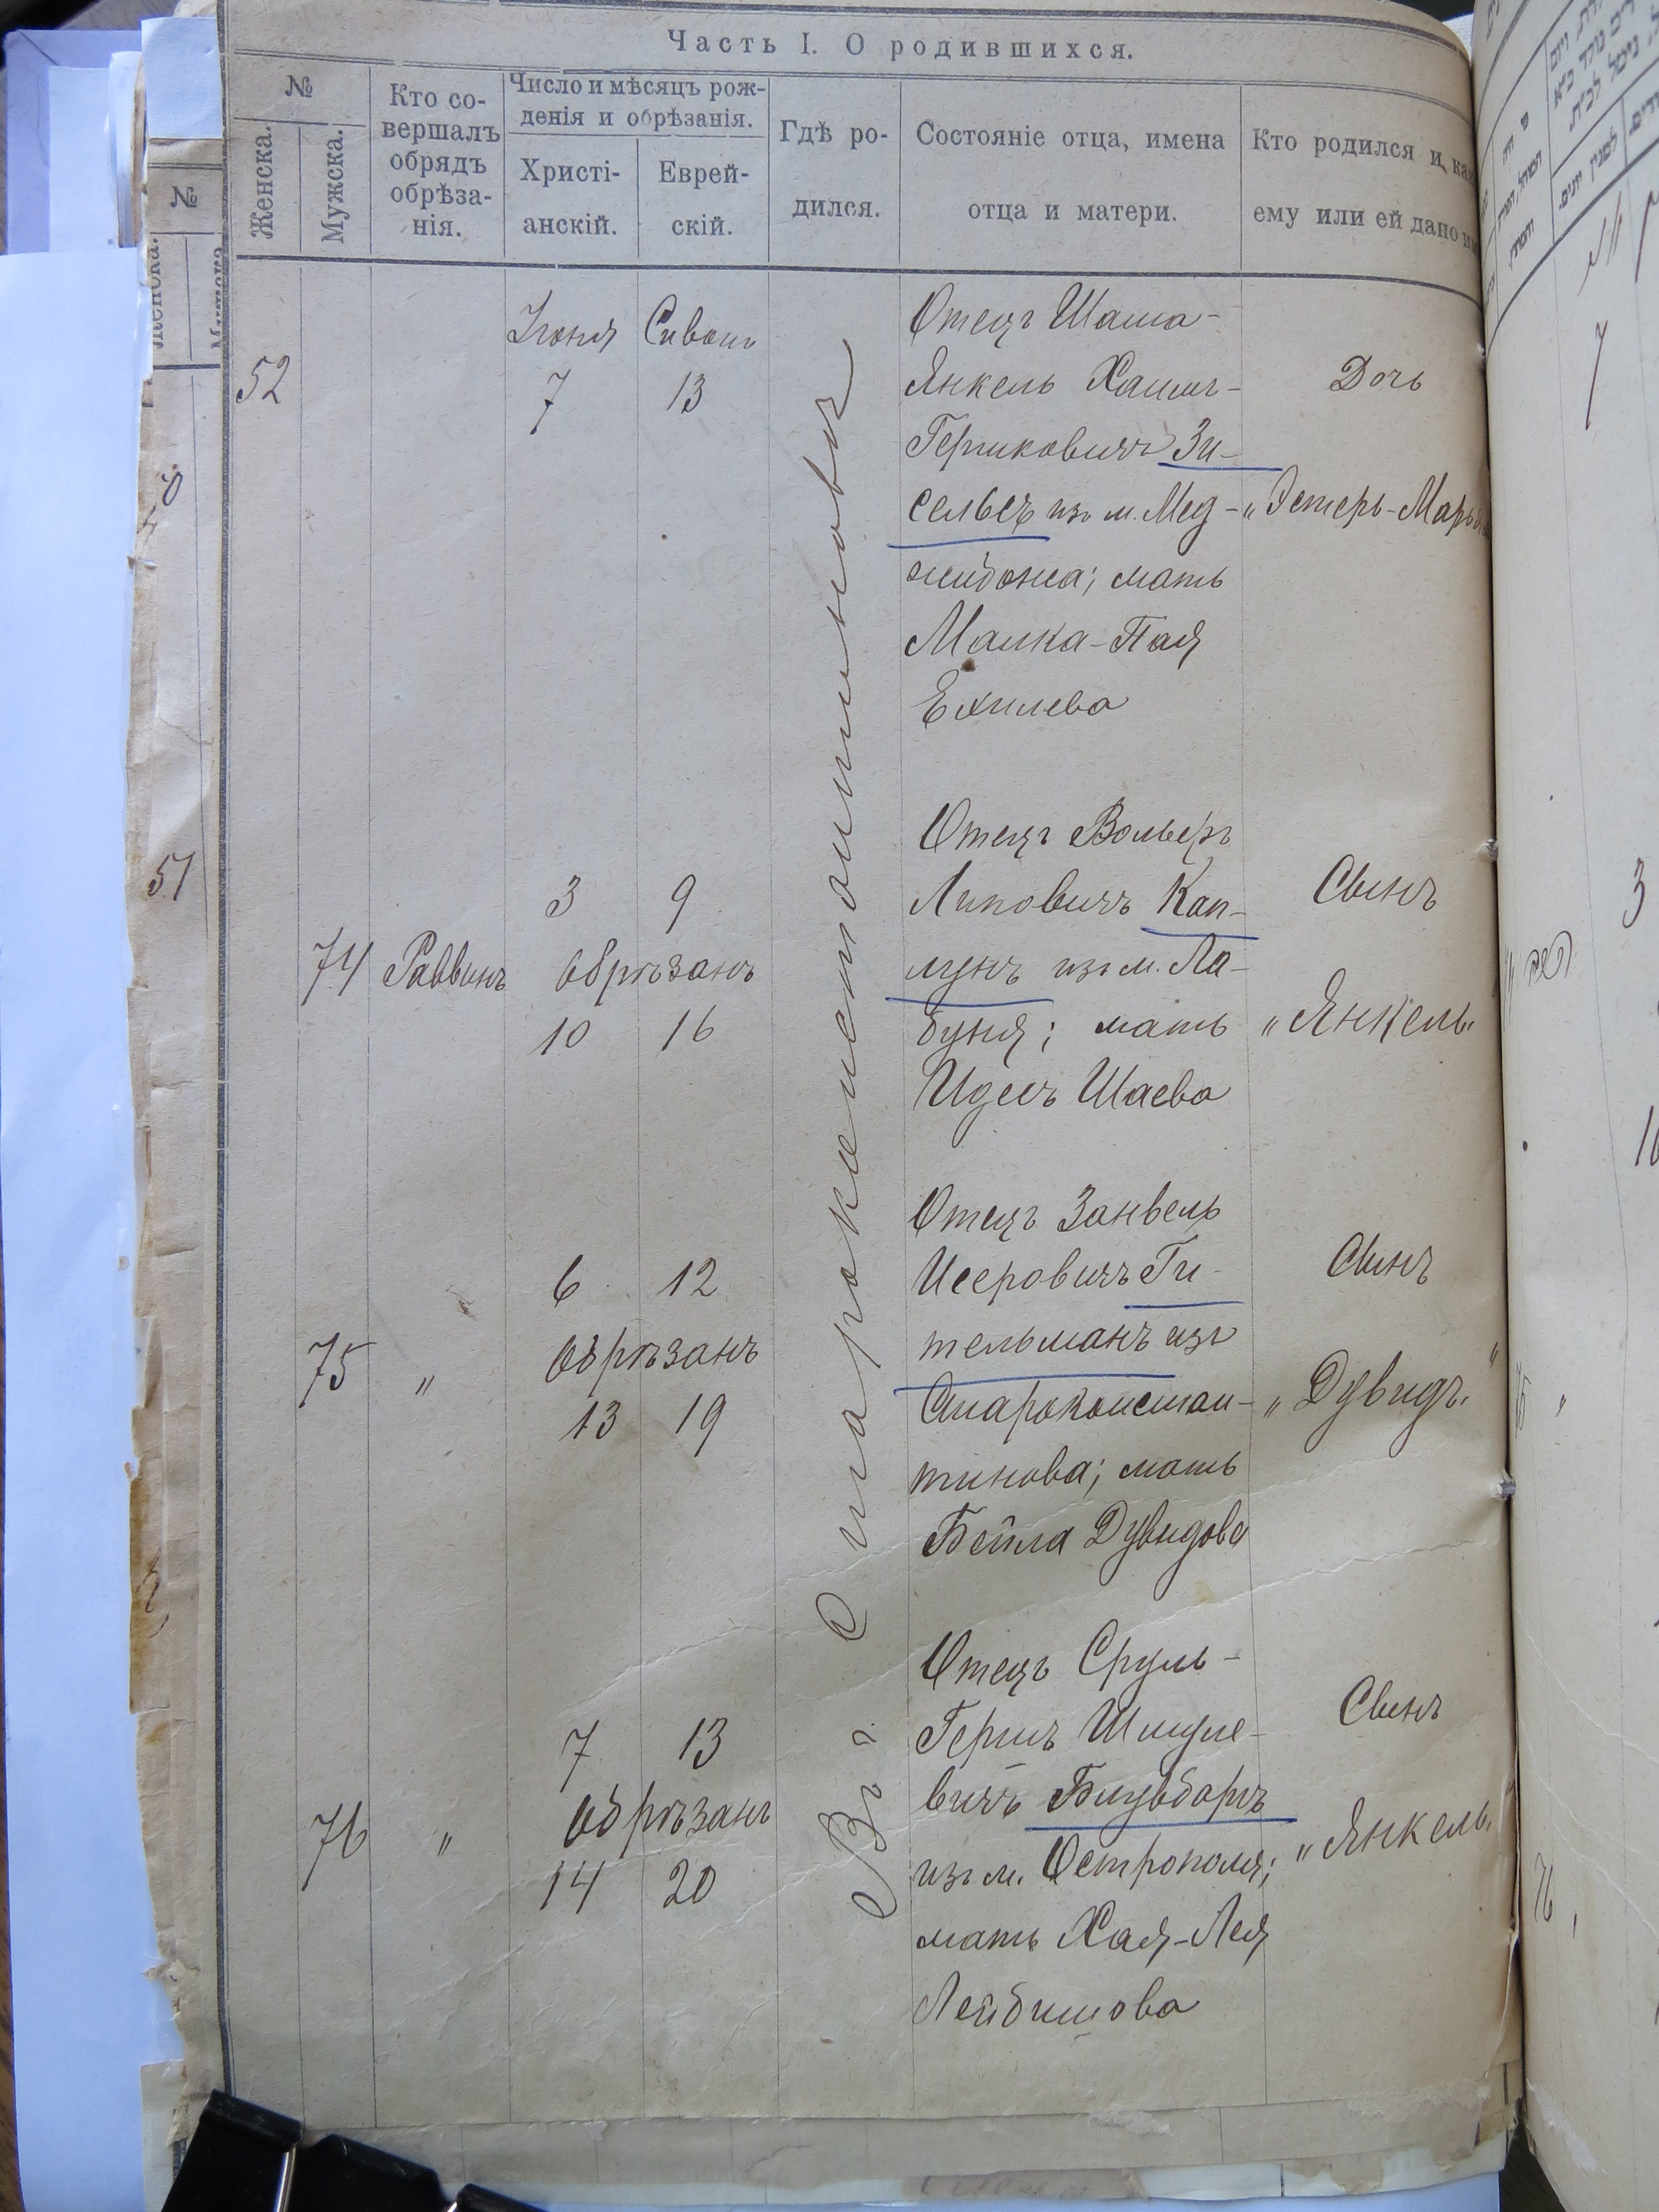 Часть I. О родившихся.
№
Женска.
Мужска.
Кто со-
вершалъ
обрядъ
обрѣза-
нія.
Число и мѣсяцъ рож-
денія и обрѣзанія.
Христі-
анскій.
Еврей-
скій.
Гдѣ ро-
дился.
Состояніе отца, имена
отца и матери.
Кто родился и, ка
ему или ей дано
№
Женска.
51
Въ г. Староконстантиновѣ
Іюня Сиванъ
52 7 13
Отецъ Шама-
Янкель Хаимъ-
Гершковичъ Зи-
сельсъ изъ м. Мед-
жибожа; мать
Малка-Пая
Ехилева
Дочь
„Эстеръ-Марь
3 9
74 Раввинъ обрѣзанъ
10 16
Отецъ Вольфъ
Липовичъ Кап-
лунъ изъ м. Ла-
буня; мать
Идесъ Шаева
Сынъ
„Янкель“
6 12
75 „ обрѣзанъ
13 19
Отецъ Занвель
Исеровичъ Ги-
тельманъ изъ
Староконстан-
тинова; мать
Бейла Дувидова
Сынъ
„Дувидъ“
7 13
76 „ обрѣзанъ
14 20
Отецъ Сруль-
Гершъ Шмуле-
вичъ
изъ м. Острополя;
мать Хая-Лея
Лейбишова
Сынъ
„Янкель“